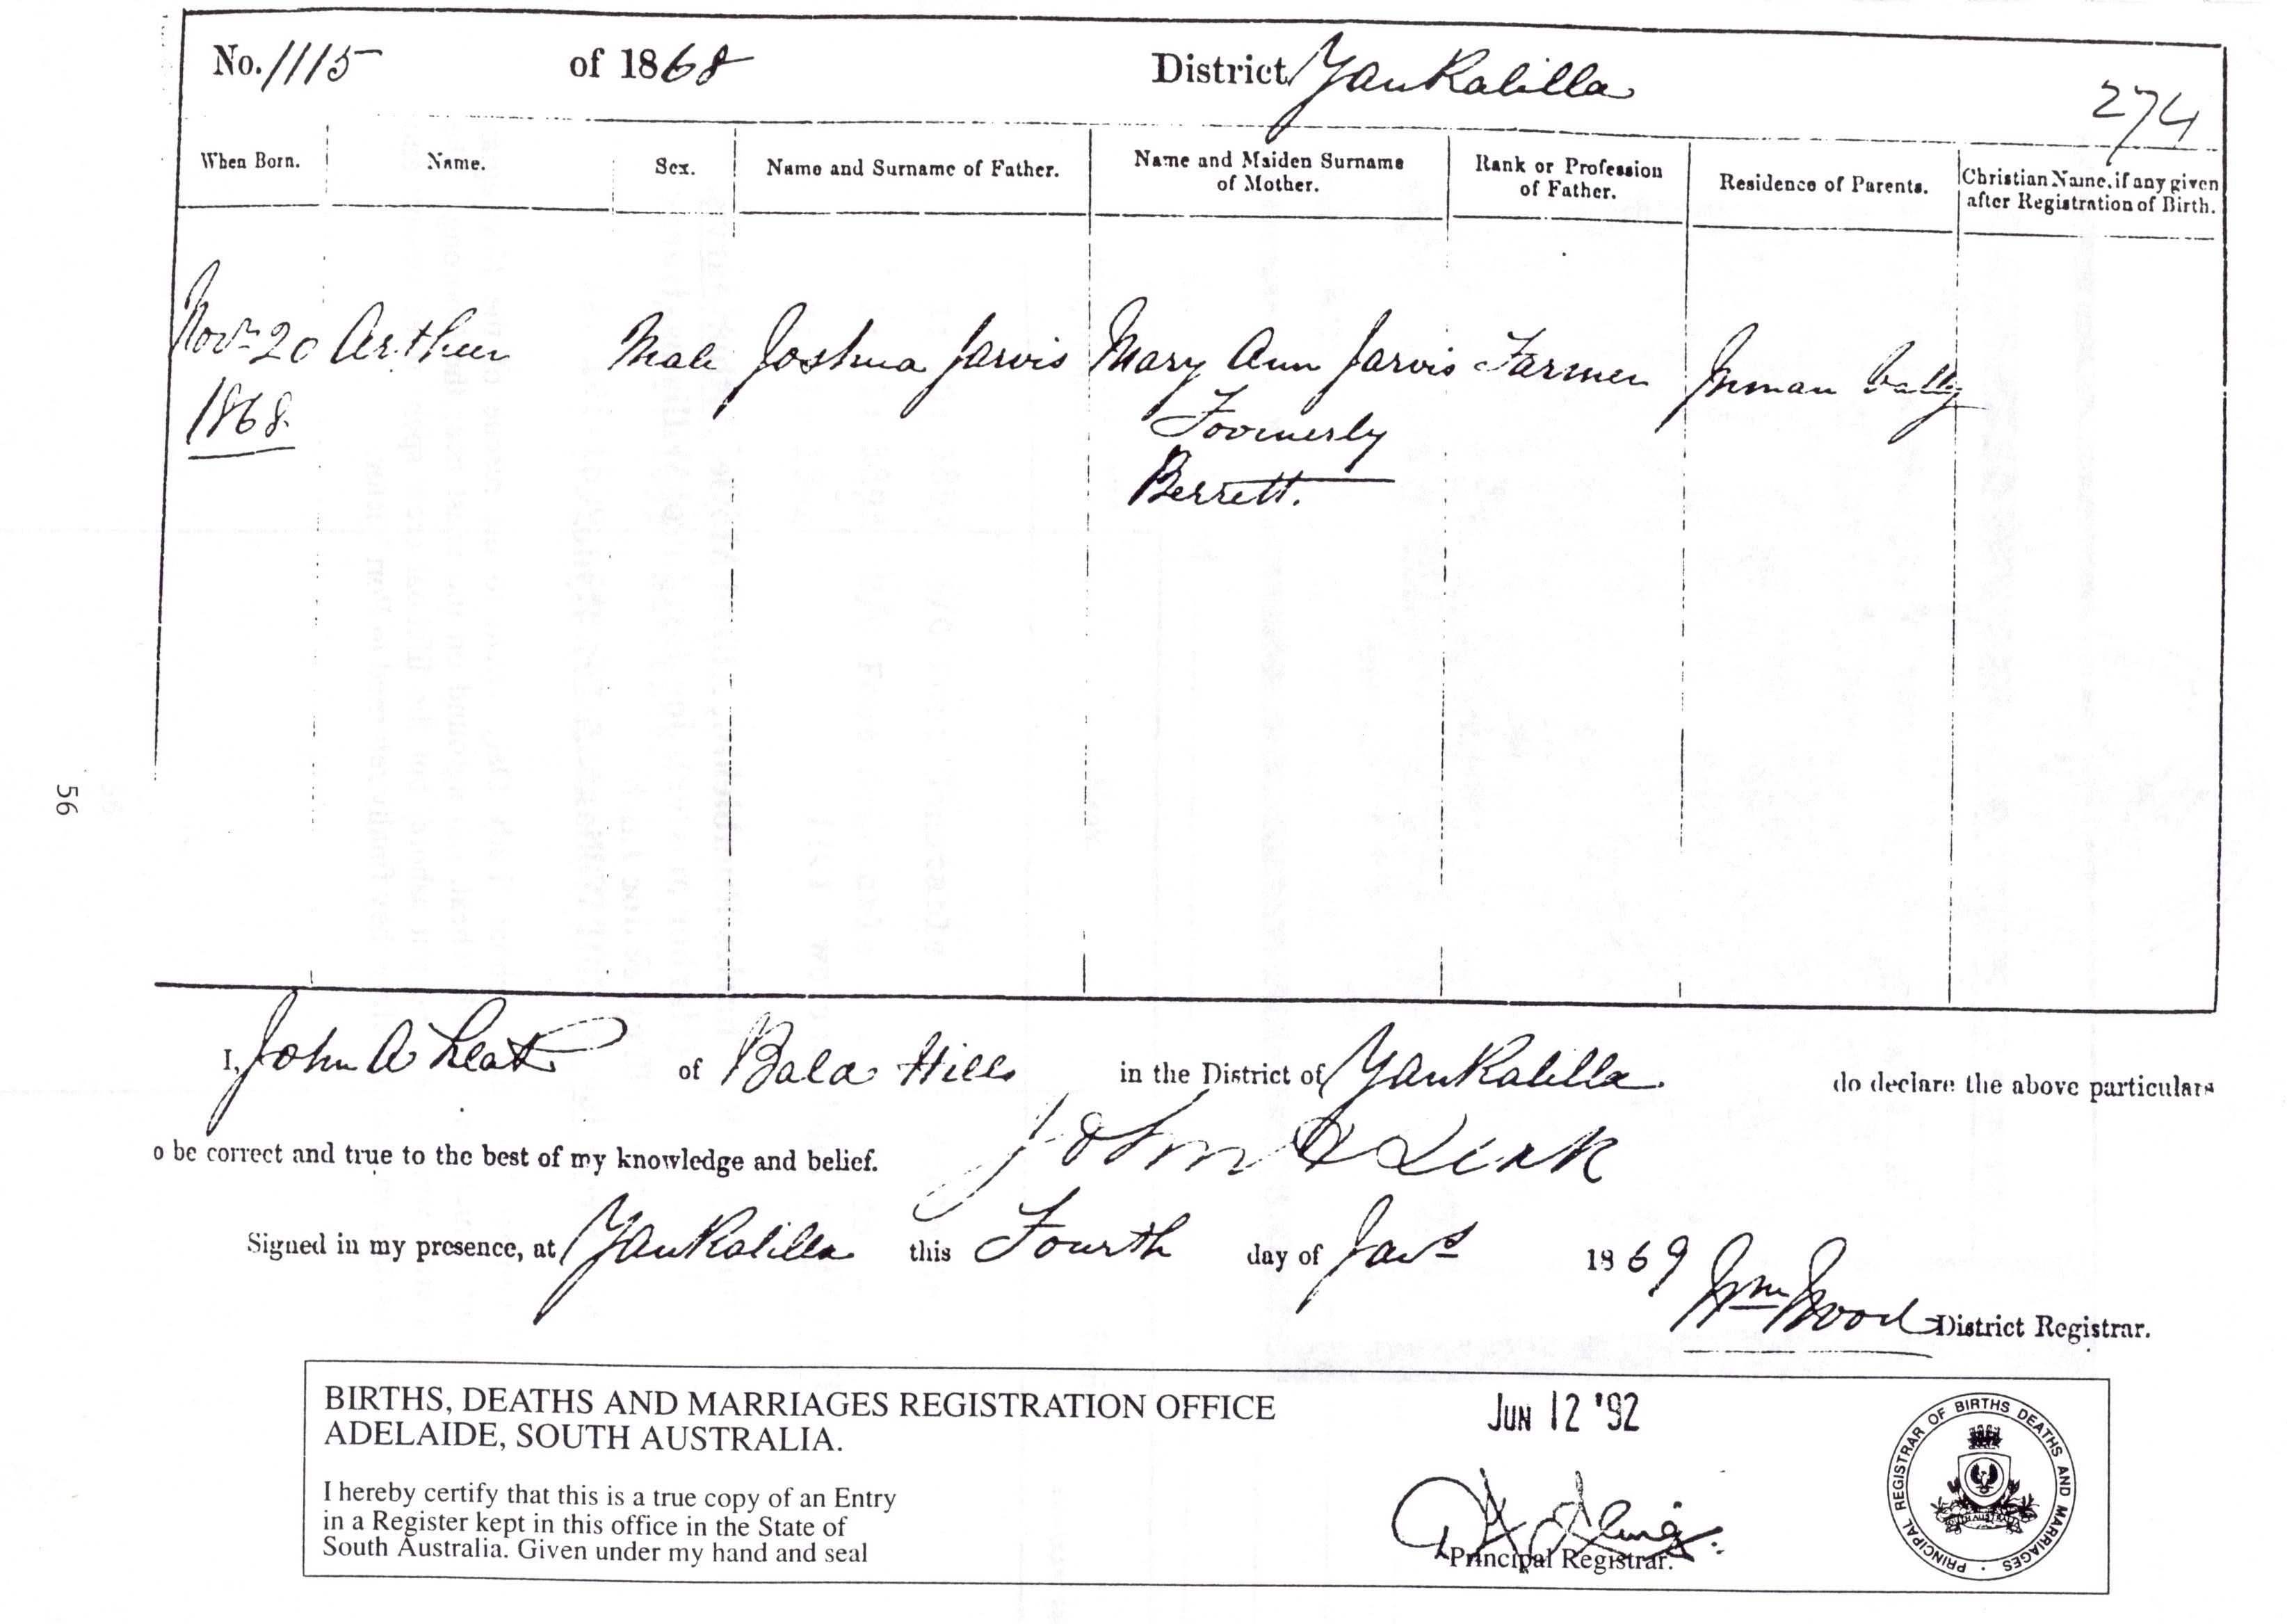 No. 1115 of 1868 District Yankalilla
274
When Born. Name. Sex. Name and Surname of Father. Name and Maiden Surname of Mother. Rank or Profession of Father. Residence of Parents. Christian Name, if any given after Registration of Birth.
Novr 20 Arthur Male Joshua Jarvis Mary Ann Jarvis Farmer Inman Vally
1868. Formerly
Berrett.
I, John A Leak of Bala Hills in the District of Yankalilla do declare the above particulars
o be correct and true to the best of my knowledge and belief. John A
Signed in my presence, at Yankalilla this Fourth day of 1869 Wm Wood District Registrar.
56
BIRTHS, DEATHS AND MARRIAGES REGISTRATION OFFICE
ADELAIDE, SOUTH AUSTRALIA.
JUN 12 '92
I hereby certify that this is a true copy of an Entry
in a Register kept in this office in the State of
South Australia. Given under my hand and seal
Principal Registrar.
PRINCIPAL REGISTRAR OF BIRTHS DEATHS AND MARRIAGES
SOUTH AUSTRALIA